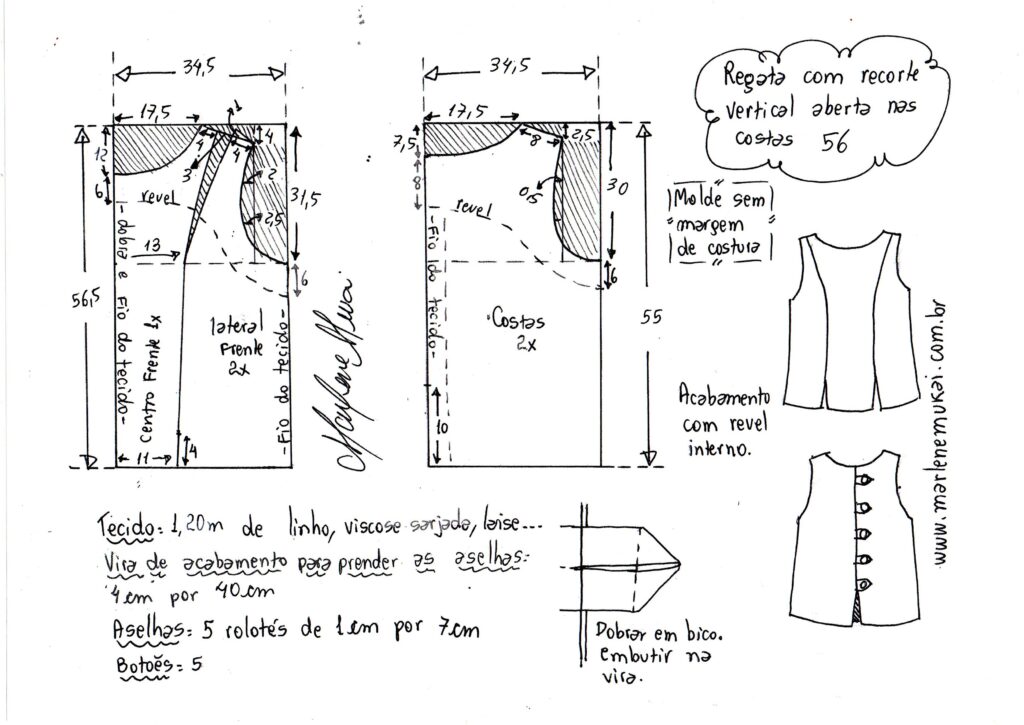 34,5
17,5
1
12
4
4
4
3
2
6
revel
31,5
2,5
13
6
56,5
-dobra e Fio do tecido-
Centro Frente 1x
lateral
Frente
2x
-Fio do tecido-
4
11
Marlene Mukai
34,5
17,5
7,5
8
2,5
8
0,5
30
revel
-Fio do tecido-
6
Costas
2x
55
10
Regata com recorte
vertical aberta nas
costas 56
Molde sem
margem
de costura
Acabamento
com revel
interno.
www.marlenemukai.com.br
Tecido: 1,20m de linho, viscose sarjada, laise...
Vira de acabamento para prender as aselhas:
4cm por 40cm
Aselhas: 5 rolotés de 1cm por 7cm
Botões: 5
Dobrar em bico.
embutir na
vira.